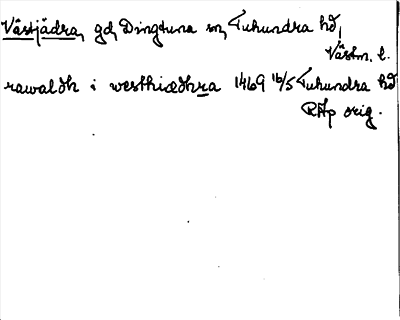 Västjädra, gd, Dingtuna sn, Tuhundra hd,
Västm. l.
rawaldh i westhiædhra 1469 16/5 Tuhundra hd
RAp orig.